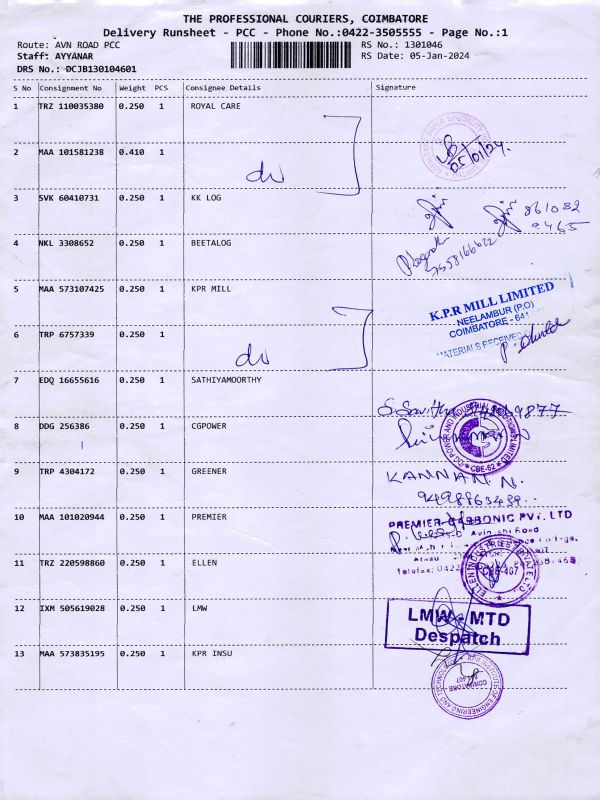 THE PROFESSIONAL COURIERS, COIMBATORE
Delivery Runsheet - PCC - Phone No.:0422-3505555 - Page No.:1
Route: AVN ROAD PCC
RS No.: 1301046
Staff: AYYANAR
RS Date: 05-Jan-2024
DRS No.: DCJB130104601
S No Consignment No Weight PCS Consignee Details Signature
1 TRZ 110035380 0.250 1 ROYAL CARE
05/01/24.
2 MAA 101581238 0.410 1
3 SVK 60410731 0.250 1 KK LOG
861082
9465
4 NKL 3308652 0.250 1 BEETALOG
5 MAA 573107425 0.250 1 KPR MILL
K.P.R MILL LIMITED
NEELAMBUR (P.O)
COIMBATORE - 641
MATERIALS RECEIVED
6 TRP 6757339 0.250 1
7 EDQ 16655616 0.250 1 SATHIYAMOORTHY
8 DDG 256386 1 CGPOWER
CBE-62
9 TRP 4304172 0.250 1 GREENER
KANNAN. N.
10 MAA 101020944 0.250 1 PREMIER
PREMIER CARBONIC PVT. LTD
11 TRZ 220598860 0.250 1 ELLEN
12 IXM 505619028 0.250 1 LMW
LMW - MTD
Despatch
13 MAA 573835195 0.250 1 KPR INSU